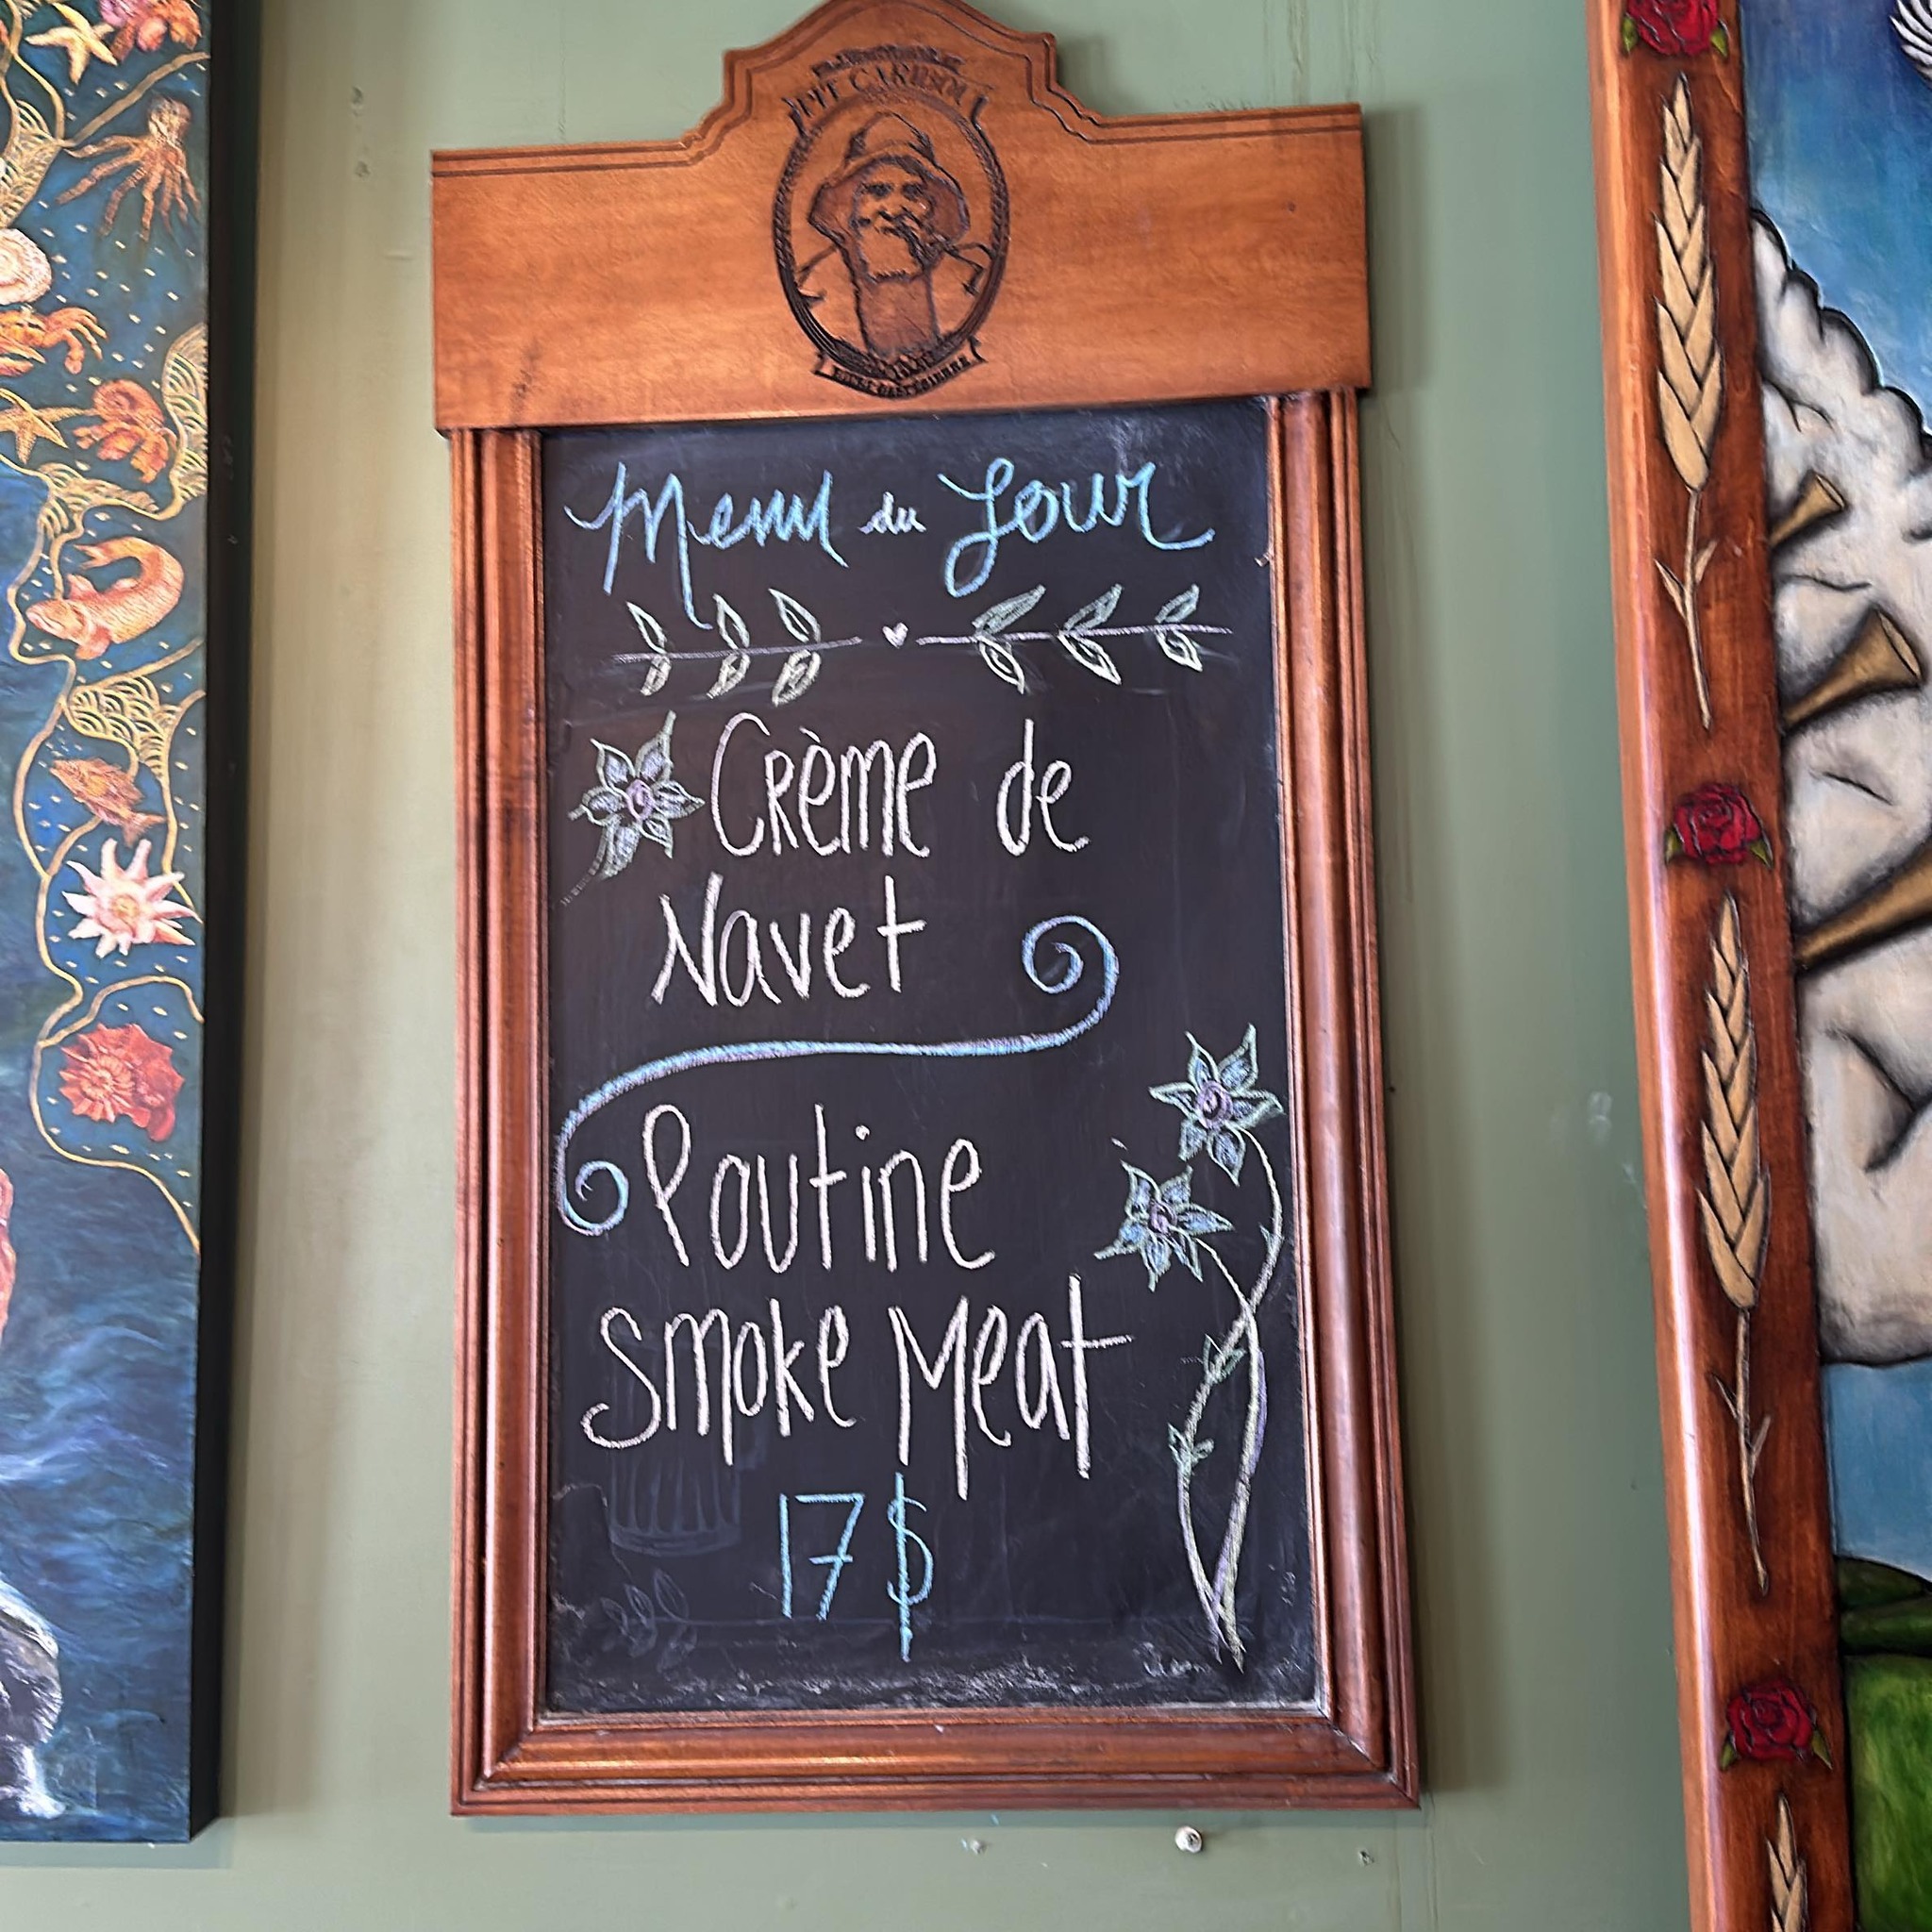 PIT CARIBOU
Menu du Jour
Crème de
Navet
Poutine
Smoke Meat
17$